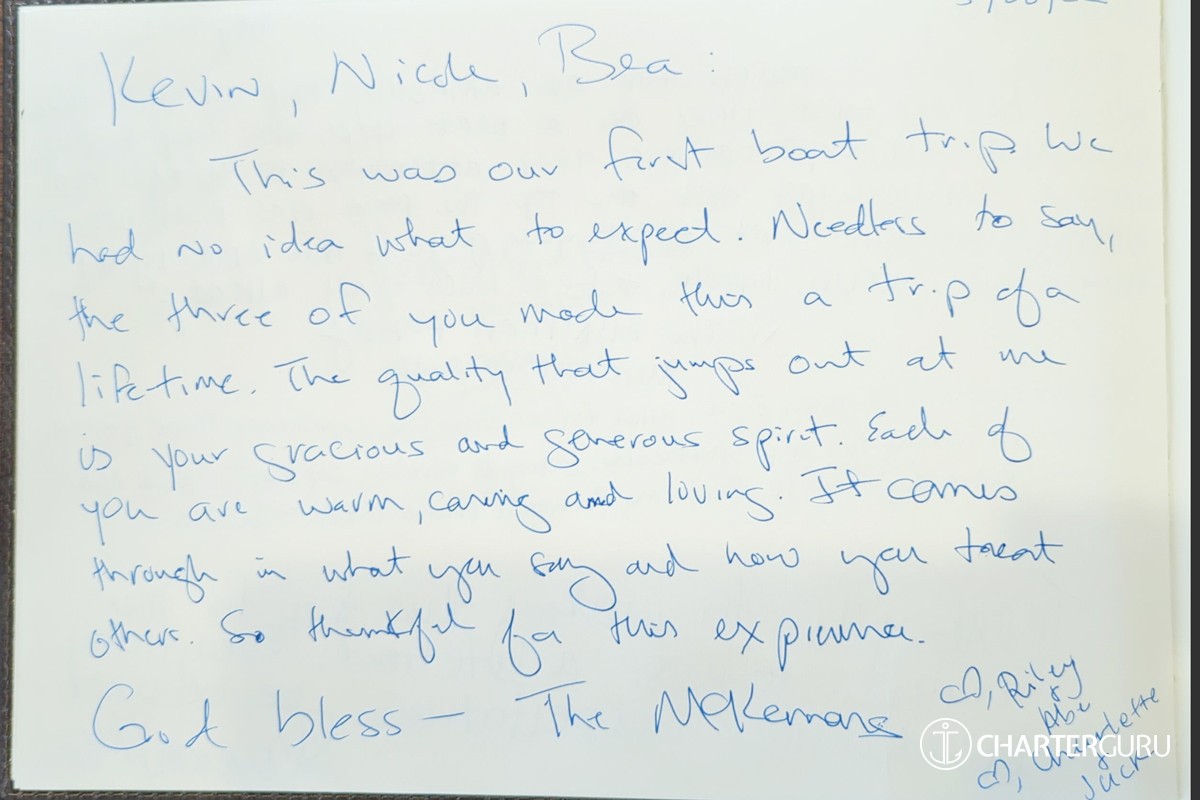 Kevin, Nicole, Bea:
This was our first boat trip. We
had no idea what to expect. Needless to say,
the three of you made this a trip of a
lifetime. The quality that jumps out at me
is your gracious and generous spirit. Each of
you are warm, caring and loving. It comes
through in what you say and how you treat
others. So thankful for this experience.
God bless — The McKernans
♡, Riley
& Abe
♡, Charlotte
& Jack
CHARTERGURU